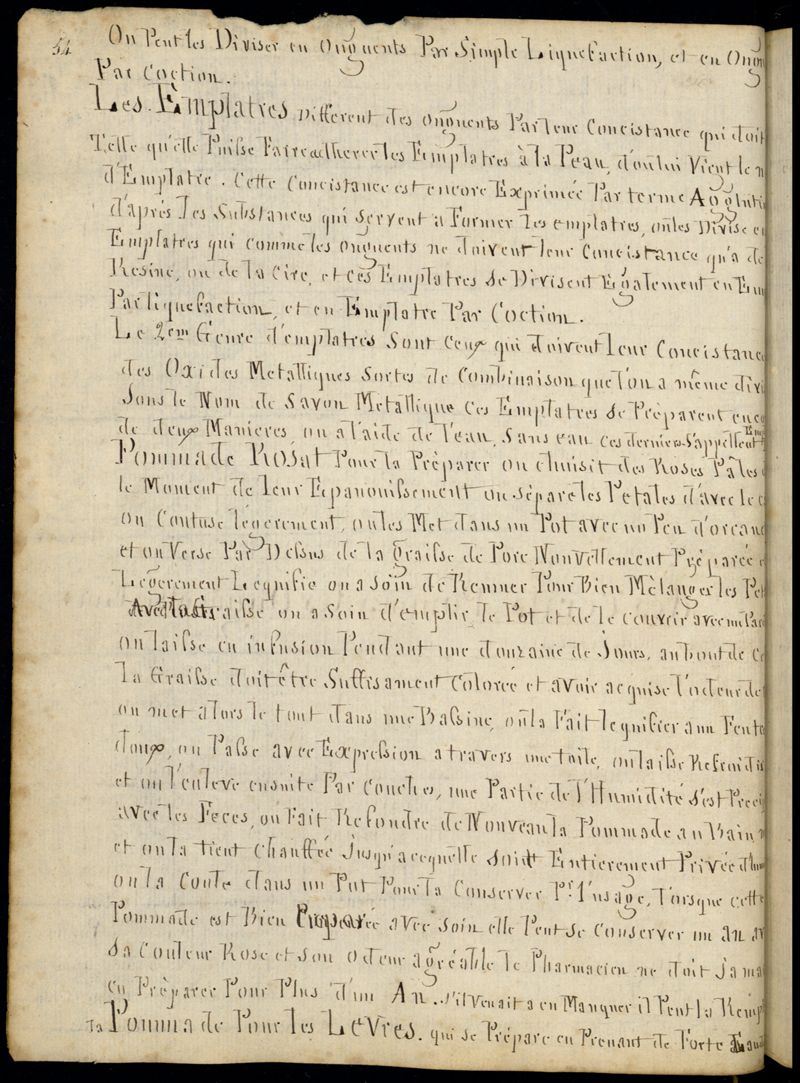 54
On Peut les Diviser en Onguents Par Simple Liquefaction, et en Ongu
Par Coction.
Les Emplatres Different des onguents Par leur Concistance qui doit
Telle qu'elle Puisse Faire adherer les Emplatres à la Peau, d'ou lui Vient le n
d'Emplatre. Cette Concistance est encore Exprimée Par terme Agglutin
d'après les Substances qui servent a Former les emplatres, on les Divise en
Emplatres qui comme les onguents ne doivent leur Concistance qu'a de
Resine, ou de la Cire, et ces Emplatres se Divisent Egalement en Em
Par liquefaction, et en Emplatre Par Coction.
Le 2em Genre d'emplatres Sont Ceux qui doivent leur Concistance
des Oxides Metalliques Sortes de Combinaison que l'on a même divi
Sous le Nom de Savon Metallique Ces Emplatres se Préparent enco
de deux Manieres, ou a l'aide de l'eau, Sans eau ces derniers S'appellent Emp
Pommade Rosat Pour la Préparer on choisit des Roses Pâles
le Moment de leur Epanouissement on sépare les Petales d'avec le c
on Contuse légerement, on les Met dans un Pot avec un Peu d'orcane
et on Verse Par Dessus de la graisse de Porc Nouvellement Préparée e
Légerement Liquifie on a Soin de Remuer Pour Bien Mélanger les Pet
Avec la Graisse on a Soin d'emplir le Pot et de le couvrir avec un Par
on laisse en infusion Pendant une douzaine de Jours, au bout de Ce
la Graisse doit être Suffisament Colorée et avoir acquise l'odeur de
on met alors le tout dans une Bassine, on la Fait lequifier a un Feu tr
doux, on Passe avec Expression a travers une toile, on laisse Refroidi
et on l'enleve ensuite Par Couches, une Partie de l'Humidité s'est Preci
avec les Feces, on Fait Refondre de Nouveau la Pommade au Bain
et on la tient Chauffée Jusqu'a cequelle Soit Entierement Privée d'hum
on la Coule dans un Pot Pour la Conserver Pr. l'usage, lorsque cette
Pommade est Bien Préparée avec Soin elle Peut se Conserver un an av
Sa Couleur Rose et Son odeur agréable le Pharmacien ne doit Jamai
en Préparer Pour Plus d'un An. S'il Venait a en Manquer il Peut la Remp
la Pommade Pour les Levres. qui se Prépare en Prenant de Forte